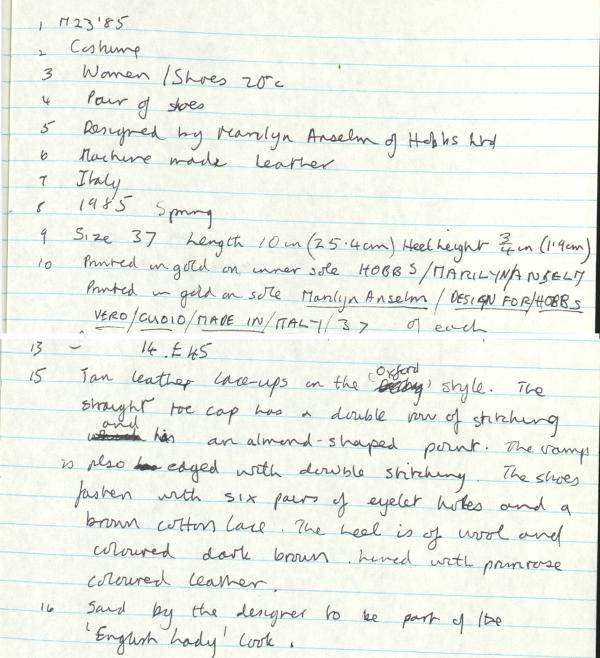 1 M23'85
2 Costume
3 Women / Shoes 20thc
4 Pair of shoes
5 Designed by Marilyn Anselm of Hobbs Ltd
6 Machine made leather
7 Italy
8 1985 Spring
9 Size 37 Length 10 in (25.4cm) Heel height 3/4 in (1.9cm)
10 Printed in gold on inner sole HOBBS/MARILYN/ANSELM
Printed in gold on sole Marilyn Anselm / DESIGN FOR/HOBBS
VERO/CUOIO/MADE IN/ITALY/37 of each
13 - 14 . £45
15 Tan leather lace-ups in the 'Oxford' style. The
straight toe cap has a double row of stitching
and an almond-shaped point. The vamp
is also edged with double stitching. The shoes
fasten with six pairs of eyelet holes and a
brown cotton lace. The heel is of wood and
coloured dark brown. Lined with primrose
coloured leather.
16 Said by the designer to be part of the
'English Lady' look.